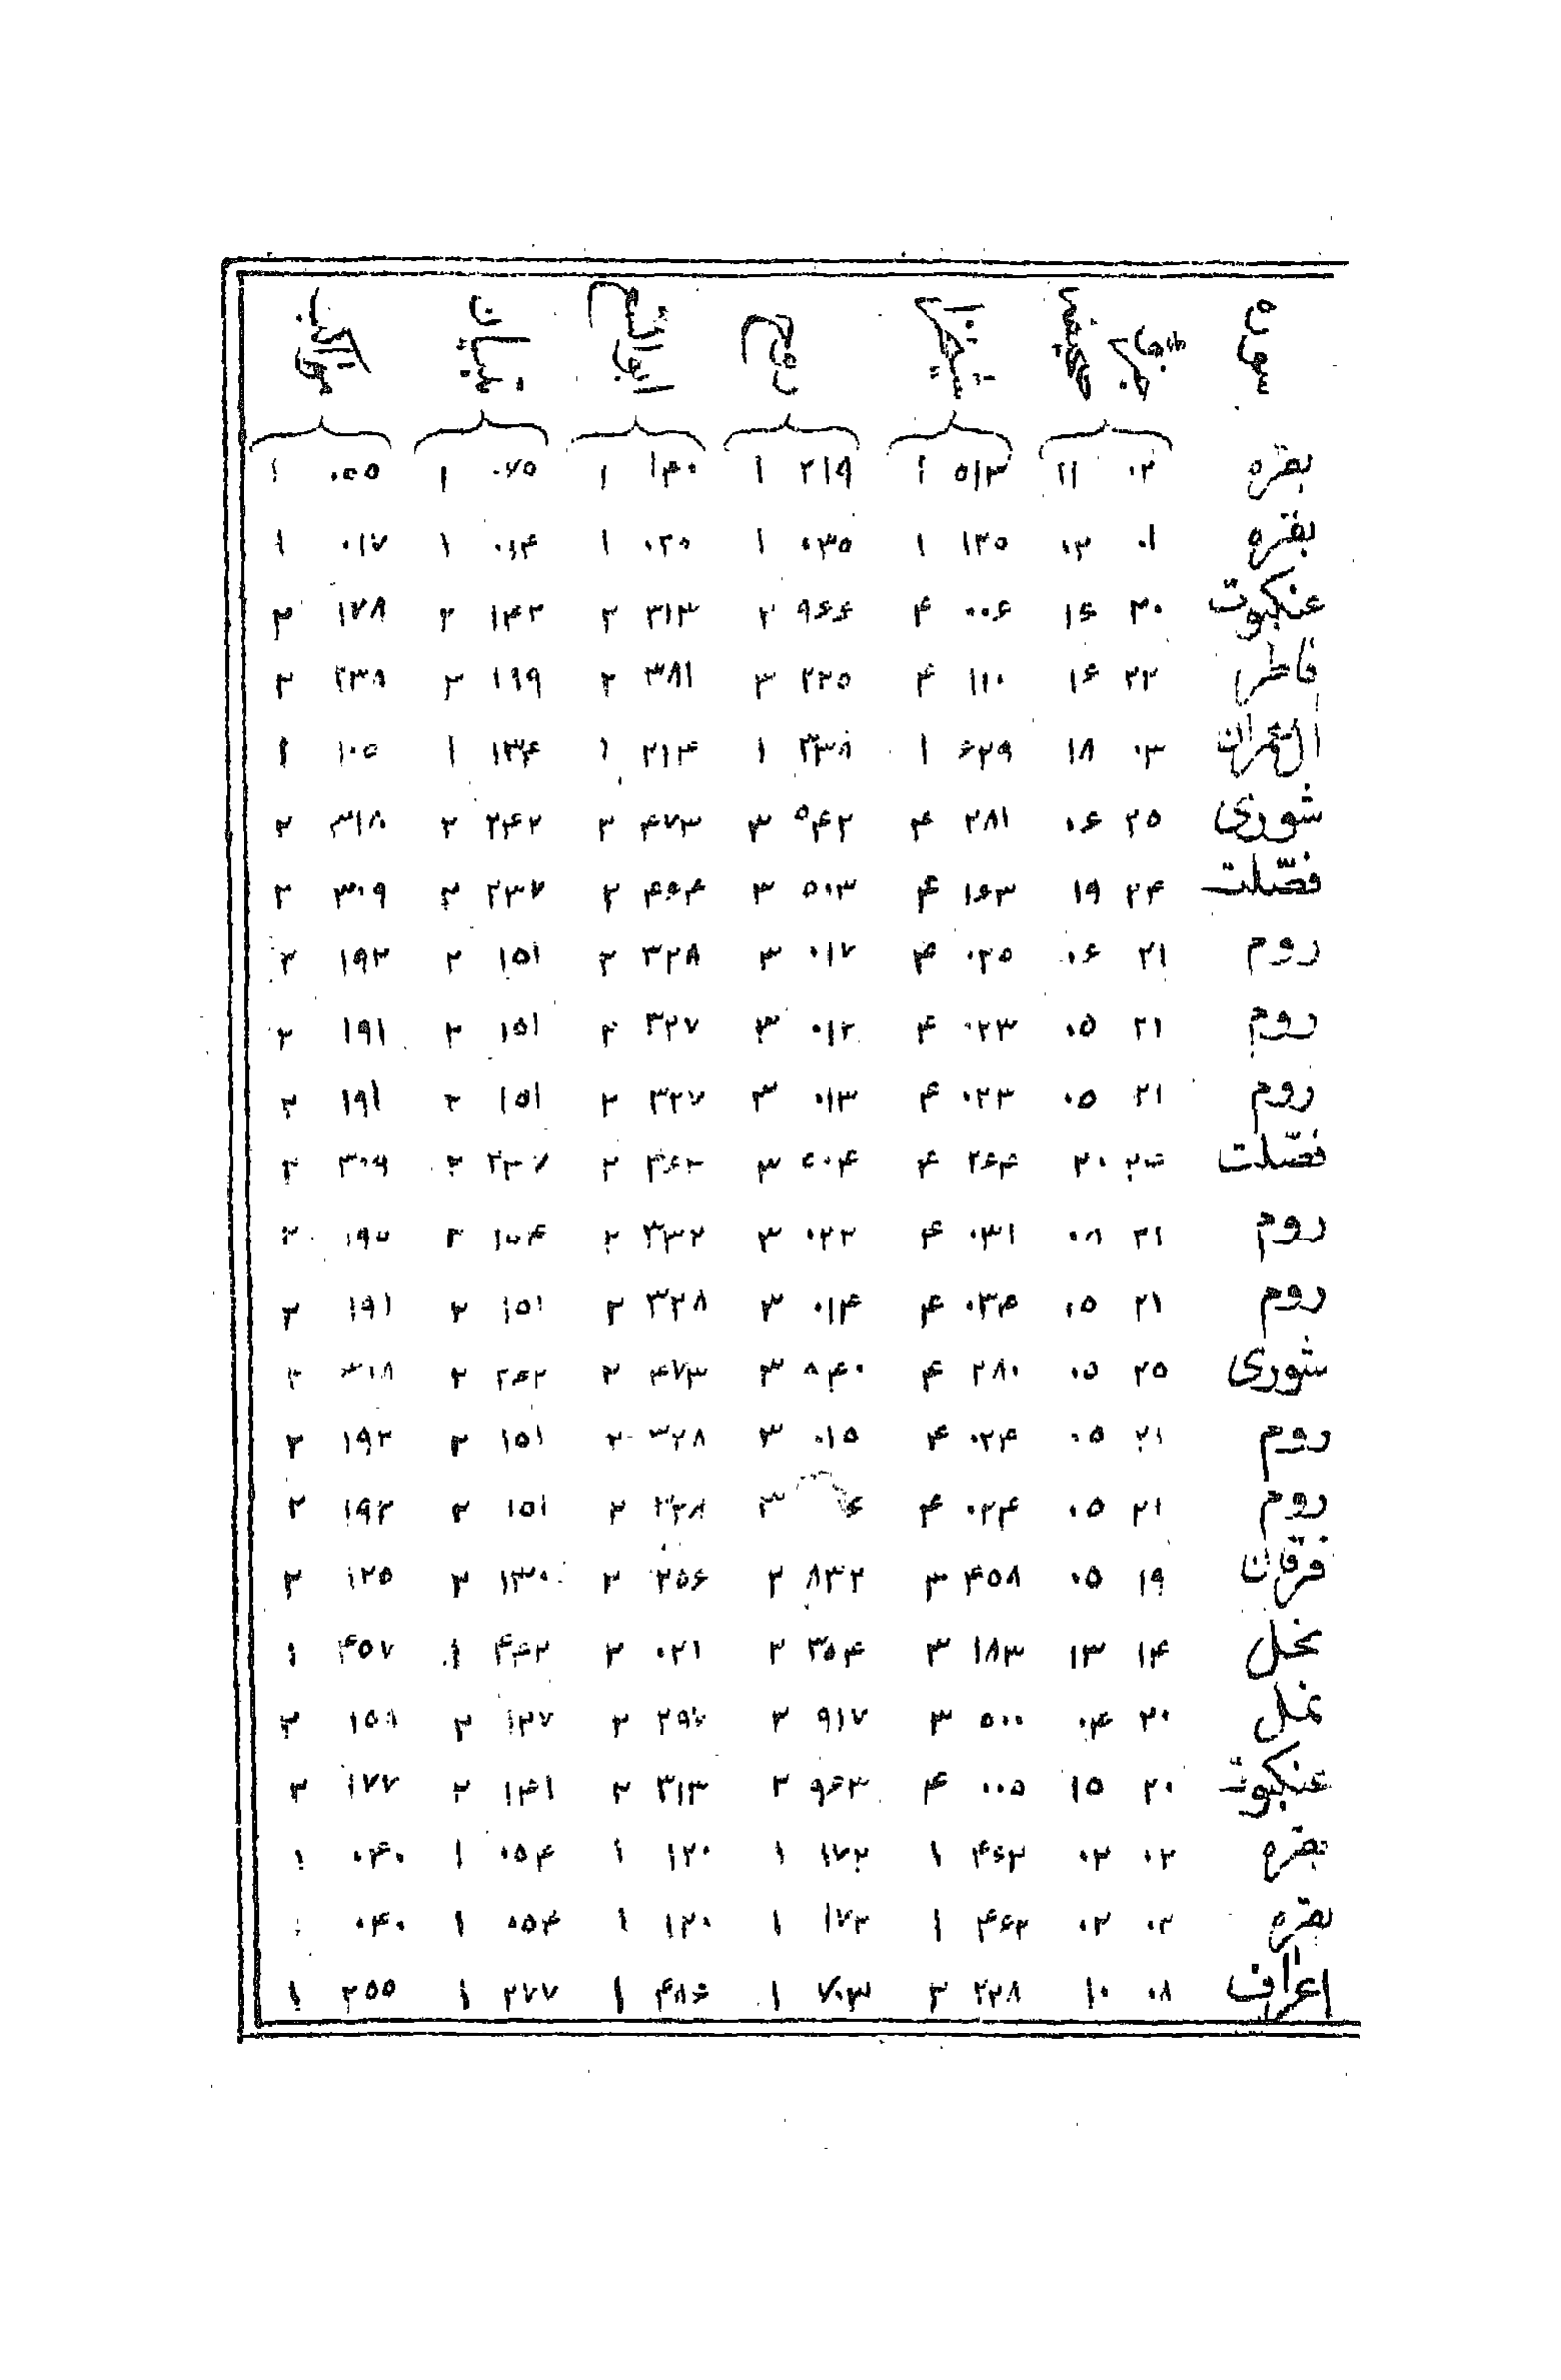 سوره
بقره ۰۲ ۱۱ ۵۱۳ ۱ ۲۱۹ ۱ ۱۴۰ ۱ ۰۷۵ ۱ ۰۵۵ ۱
بقره ۰۱ ۰۳ ۱۲۵ ۱ ۰۳۵ ۱ ۰۲۵ ۱ ۰۱۴ ۱ ۰۱۷ ۱
عنکبوت ۲۰ ۱۶ ۰۰۶ ۴ ۹۶۶ ۲ ۳۱۳ ۲ ۱۴۲ ۲ ۱۷۸ ۲
فاطر ۲۲ ۱۶ ۱۱۰ ۴ ۲۲۵ ۳ ۳۸۱ ۲ ۱۹۹ ۲ ۲۳۸ ۲
ال عمران ۰۳ ۱۸ ۶۲۹ ۱ ۳۳۸ ۱ ۲۱۴ ۱ ۱۳۴ ۱ ۱۰۵ ۱
شوری ۲۵ ۰۶ ۲۸۱ ۴ ۵۴۲ ۳ ۴۷۳ ۲ ۲۴۲ ۲ ۳۱۸ ۲
فصّلت ۲۴ ۱۹ ۱۶۳ ۴ ۵۰۳ ۳ ۴۶۴ ۲ ۲۳۷ ۲ ۳۰۹ ۲
روم ۲۱ ۰۶ ۰۲۵ ۴ ۰۱۷ ۳ ۳۲۸ ۲ ۱۵۱ ۲ ۱۹۲ ۲
روم ۲۱ ۰۵ ۰۲۳ ۴ ۰۱۲ ۳ ۳۲۷ ۲ ۱۵۱ ۲ ۱۹۱ ۲
روم ۲۱ ۰۵ ۰۲۳ ۴ ۰۱۳ ۳ ۳۲۷ ۲ ۱۵۱ ۲ ۱۹۱ ۲
فصّلت ۲۴ ۲۰ ۲۶۴ ۴ ۵۰۴ ۳ ۴۶۳ ۲ ۲۳۷ ۲ ۳۰۹ ۲
روم ۲۱ ۰۸ ۰۳۱ ۴ ۰۲۲ ۳ ۳۳۲ ۲ ۱۵۴ ۲ ۱۹۵ ۲
روم ۲۱ ۰۵ ۰۲۴ ۴ ۰۱۴ ۳ ۳۲۸ ۲ ۱۵۱ ۲ ۱۹۱ ۲
شوری ۲۵ ۰۵ ۲۸۰ ۴ ۵۴۰ ۳ ۴۷۳ ۲ ۲۴۲ ۲ ۳۱۸ ۲
روم ۲۱ ۰۵ ۰۲۴ ۴ ۰۱۵ ۳ ۳۲۸ ۲ ۱۵۱ ۲ ۱۹۲ ۲
روم ۲۱ ۰۵ ۰۲۴ ۴ ۳ ۳۲۸ ۲ ۱۵۱ ۲ ۱۹۲ ۲
فرقان ۱۹ ۰۵ ۴۵۸ ۳ ۸۳۲ ۲ ۲۵۶ ۲ ۱۳۰ ۲ ۱۲۵ ۲
نحل ۱۴ ۱۳ ۱۸۳ ۳ ۳۵۴ ۲ ۰۲۱ ۲ ۴۴۲ ۱ ۴۵۷ ۱
نمل ۲۰ ۰۴ ۵۰۰ ۳ ۹۱۷ ۲ ۲۹۷ ۲ ۱۲۷ ۲ ۱۵۸ ۲
عنکبوت ۲۰ ۱۵ ۰۰۵ ۴ ۹۶۳ ۲ ۳۱۳ ۲ ۱۴۱ ۲ ۱۷۷ ۲
بقره ۰۲ ۰۲ ۴۶۲ ۱ ۱۷۲ ۱ ۱۲۰ ۱ ۰۵۴ ۱ ۰۴۰ ۱
بقره ۰۲ ۰۲ ۴۶۲ ۱ ۱۷۲ ۱ ۱۲۰ ۱ ۰۵۴ ۱ ۰۴۰ ۱
اعراف ۰۸ ۱۰ ۲۲۸ ۲ ۷۰۳ ۱ ۴۸۶ ۱ ۲۷۷ ۱ ۲۵۵ ۱